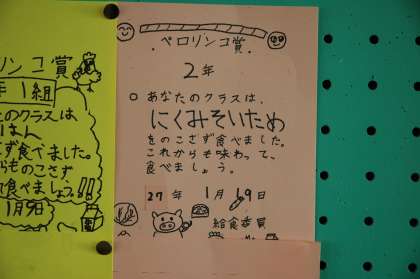 リンコ賞
年1組
たのクラスは
はん
ず食べました。
らものこさず
食べましょう!!
1月9日
ペロリンコ賞
2年
○ あなたのクラスは、
にくみそいため
をのこさず食べました。
これからも味わって、
食べましょう。
27年 1月 日
給食委員